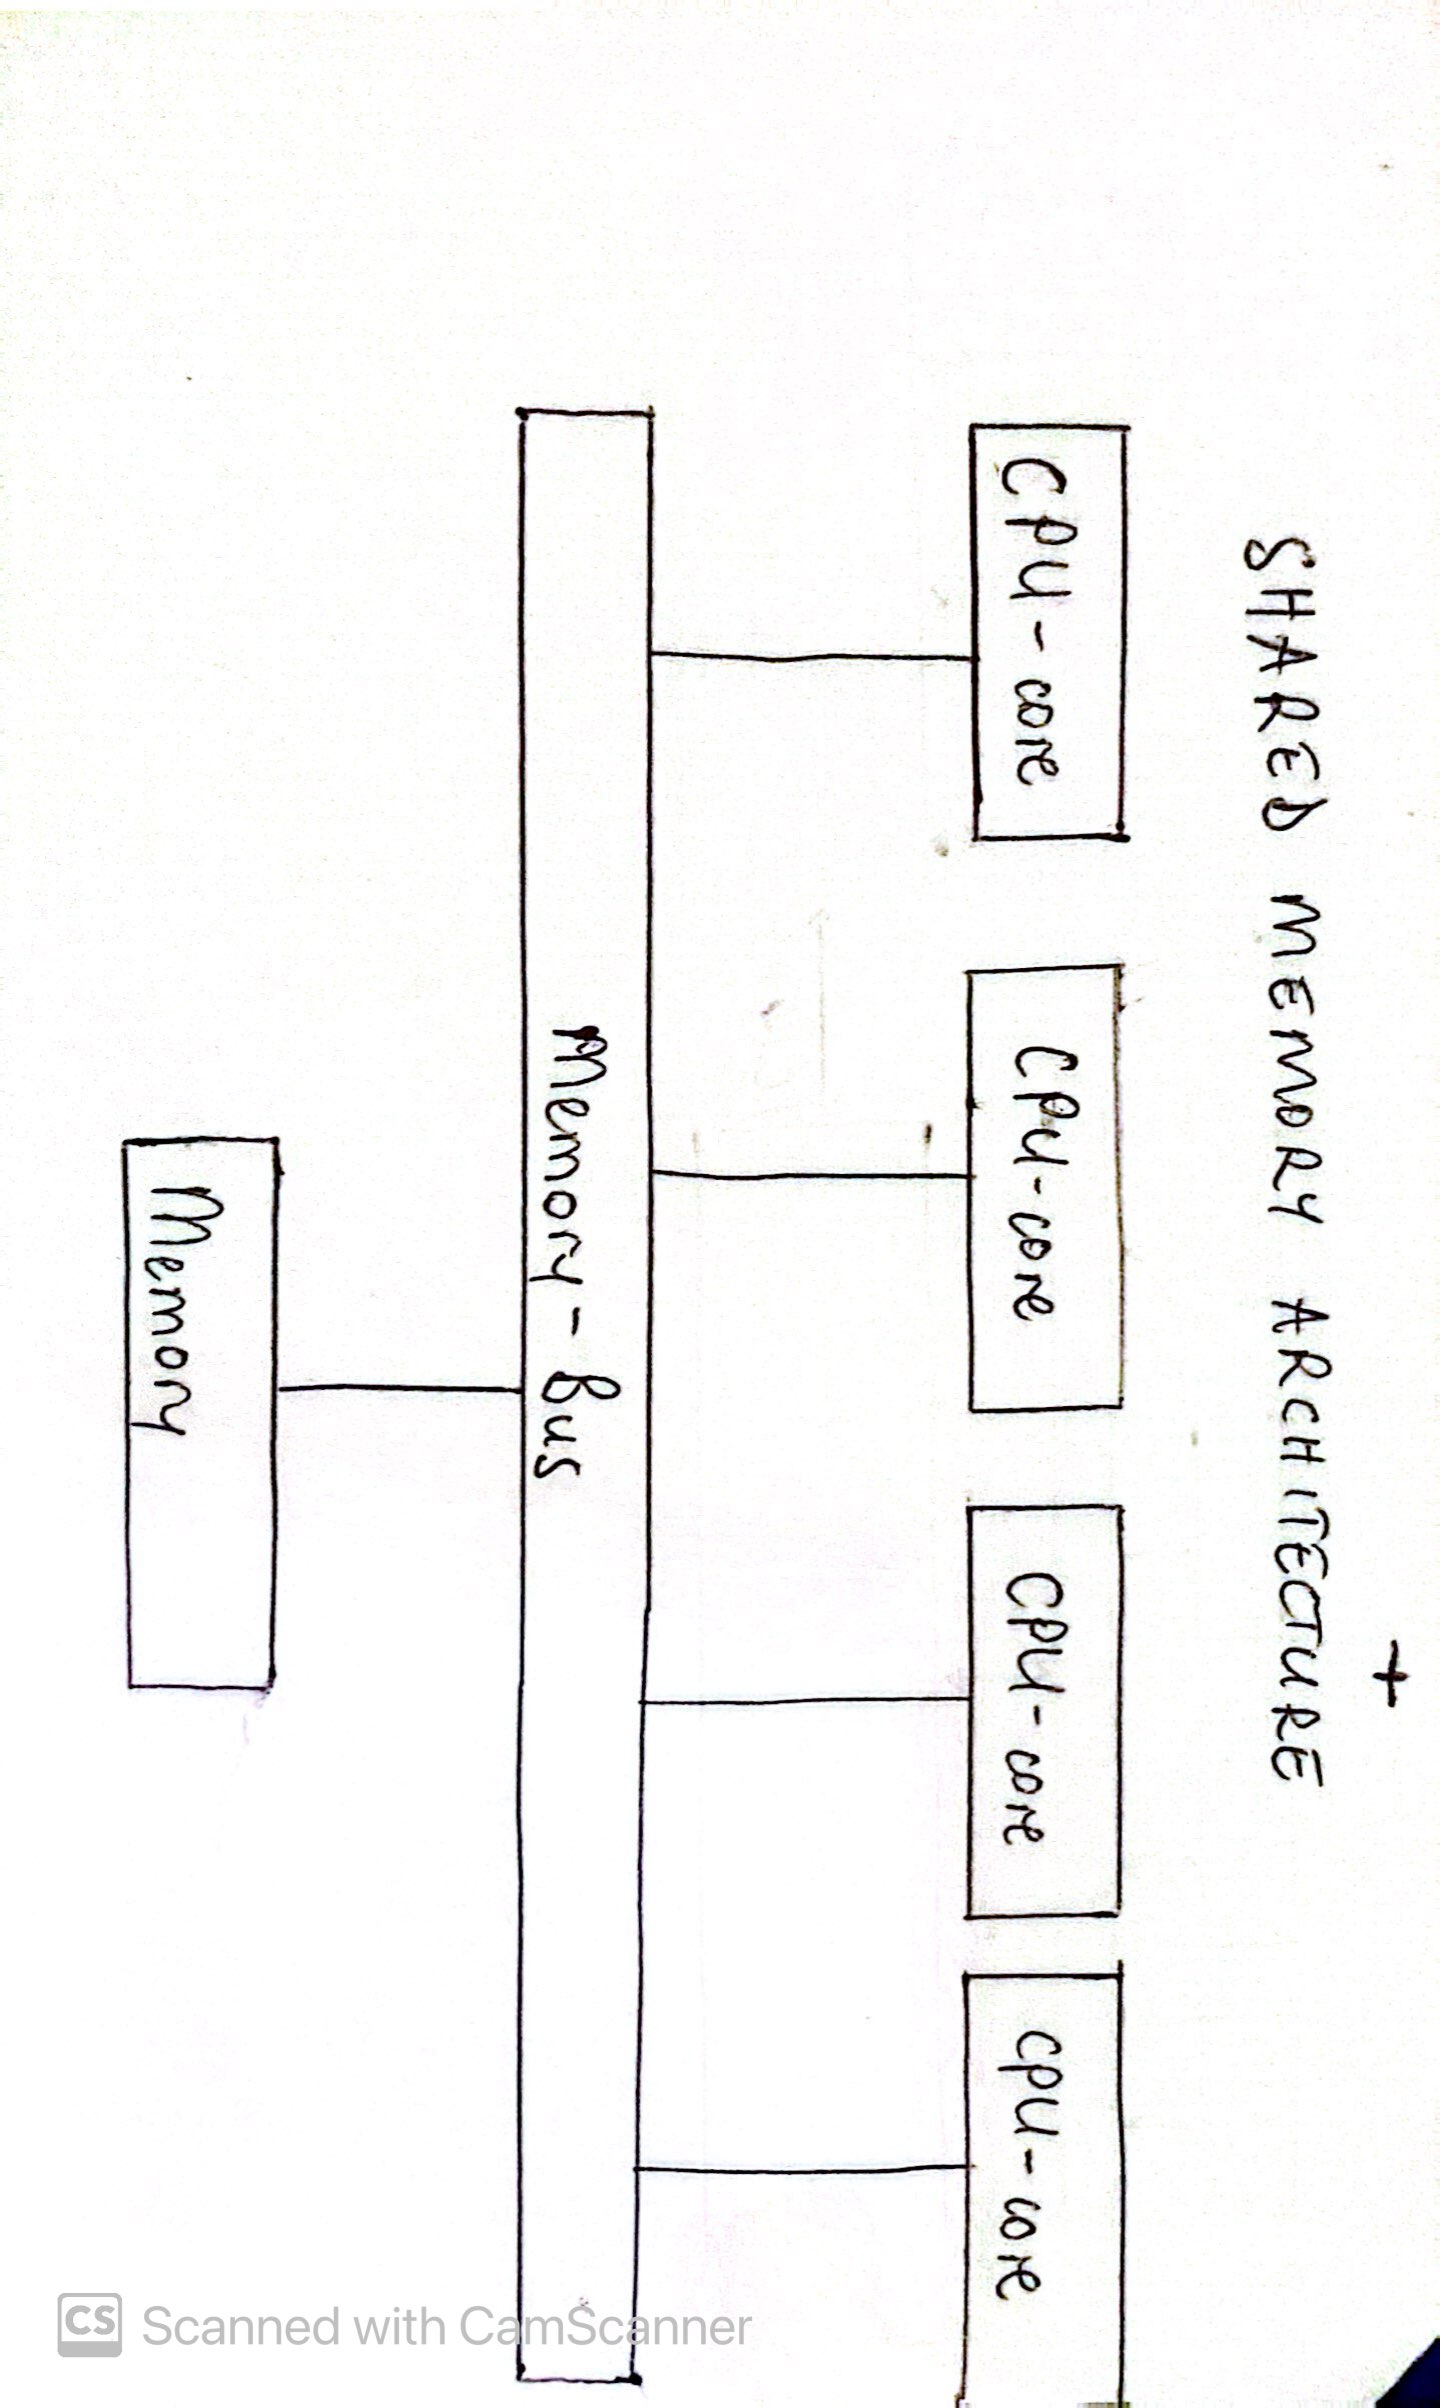 +
SHARED MEMORY ARCHITECTURE
CPU-core
CPU-core
CPU-core
CPU-core
Memory-Bus
Memory
CS Scanned with CamScanner